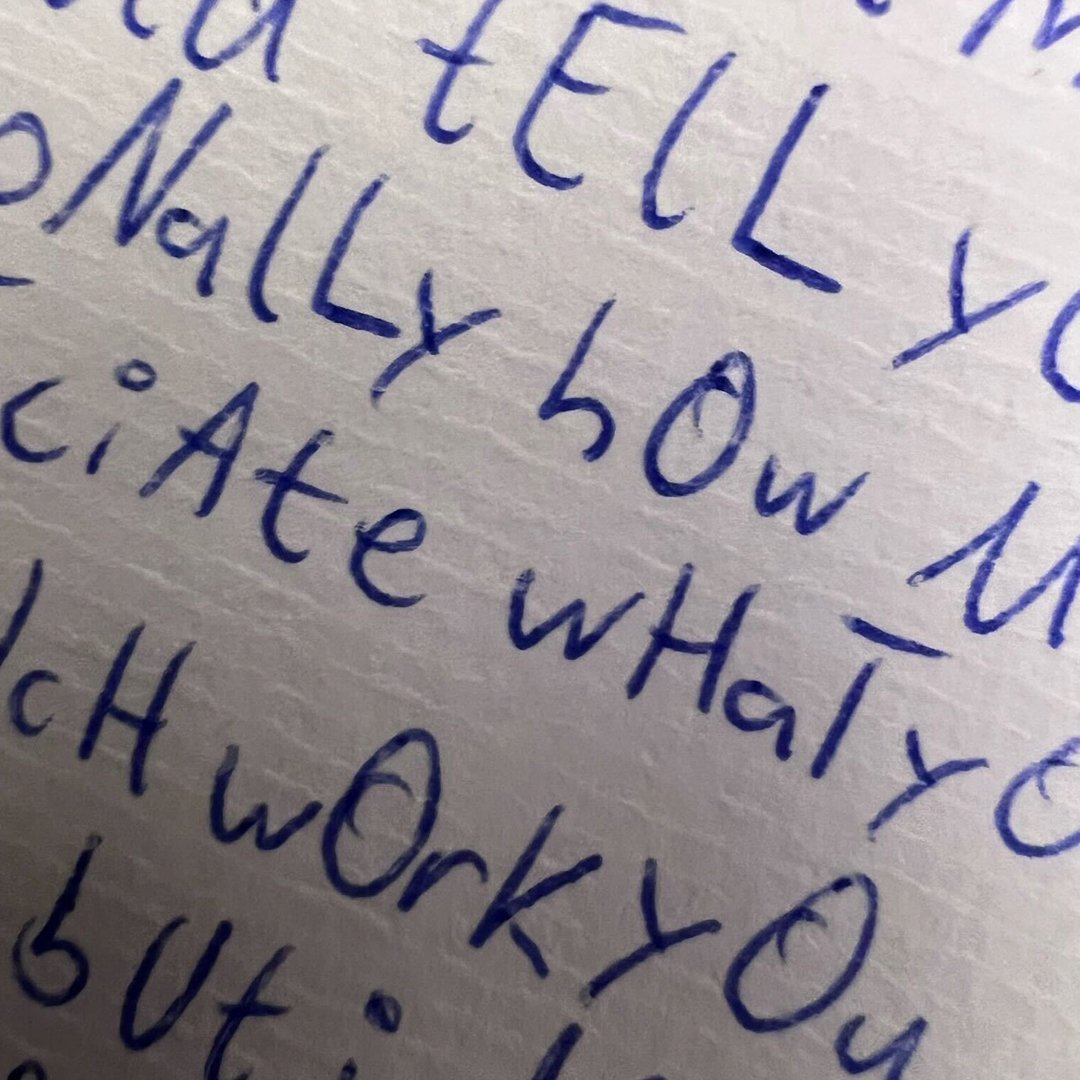 tELL yO
oNaLLy hOw M
ciAte wHaT yO
cH wOrK yOu
bUt i